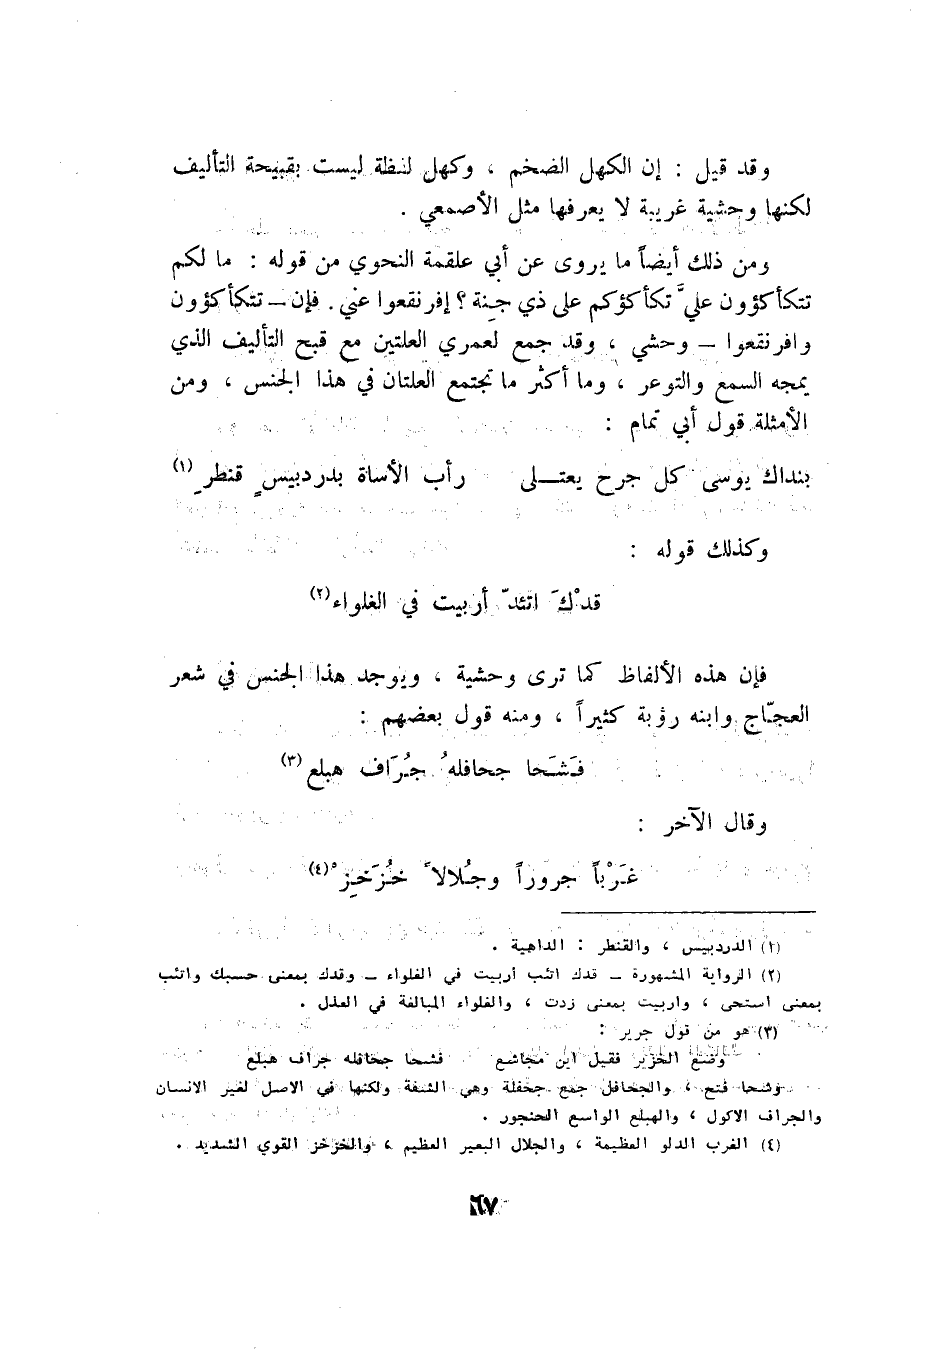 وقد قيل : إن الكهل الضخم ، وكهل لفظة ليست بقبيحة التأليف
لكنها وحشية غريبة لا يعرفها مثل الأصمعي .
ومن ذلك أيضاً ما يروى عن أبي علقمة النحوي من قوله : ما لكم
تتكأكؤون عليَّ تكأكؤكم على ذي جِنة ؟ إفرنقعوا عني . فإن – تتكأكؤون
وافرنقعوا – وحشي ، وقد جمع لعمري العلتين مع قبح التأليف الذي
يمجه السمع والتوعر ، وما أكثر ما تجتمع العلتان في هذا الجنس ، ومن
الأمثلة قول أبي تمام :
بنداك يوسى كل جرح يعتـــلى رأب الأساة بدردبيسٍ قنطرِ (١)
وكذلك قوله :
قدْكَ اتئدّ أربيت في الغلواء (٢)
فإن هذه الألفاظ كما ترى وحشية ، ويوجد هذا الجنس في شعر
العجّاج وابنه رؤبة كثيراً ، ومنه قول بعضهم :
فَشَحا جحافلهُ جُرَاف هبلع (٣)
وقال الآخر :
غَرْباً جروراً وجُلالاً خُزَخِزْ (٤)
(١) الدردبيس ، والقنطر : الداهية .
(٢) الرواية المشهورة – قدك اتئب أربيت في الغلواء – وقدك بمعنى حسبك واتئب
بمعنى استحى ، واربيت بمعنى زدت ، والغلواء المبالغة في العذل .
(٣) هو من قول جرير :
وضع الخزير فقيل اين مجاشع فشحا جحافله جراف هبلع
وشحا فتح ، والجحافل جمع جحفلة وهي الشفة ولكنها في الاصل لغير الانسان
والجراف الاكول ، والهبلع الواسع الحنجور .
(٤) الغرب الدلو العظيمة ، والجلال البعير العظيم ، والخزخز القوي الشديد .
٦٧